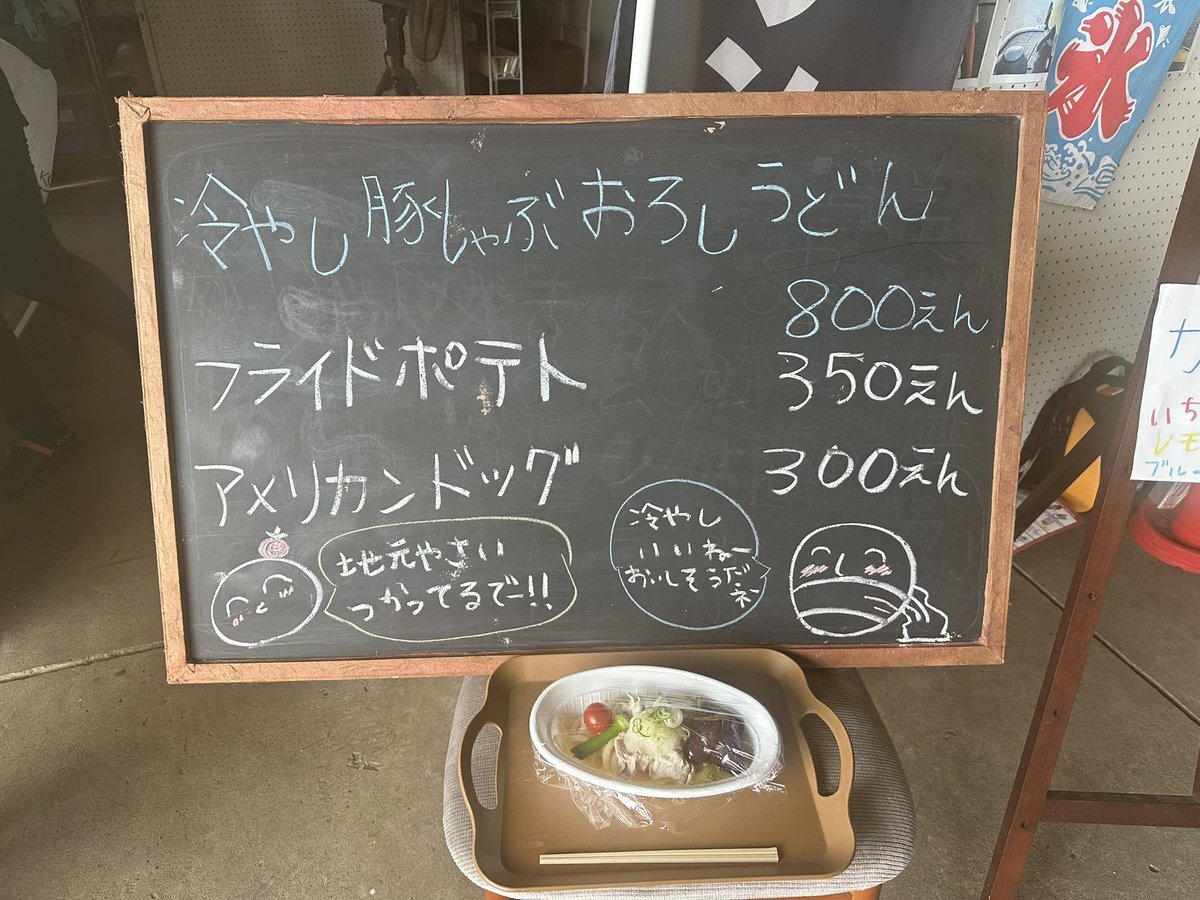 氷
冷やし豚しゃぶおろしうどん
800えん
フライドポテト 350えん
アメリカンドッグ 300えん
地元やさい
つかってるでー!!
冷やし
いいねー
おいしそうだ
ネ
カ
いち
レモ
ブルー